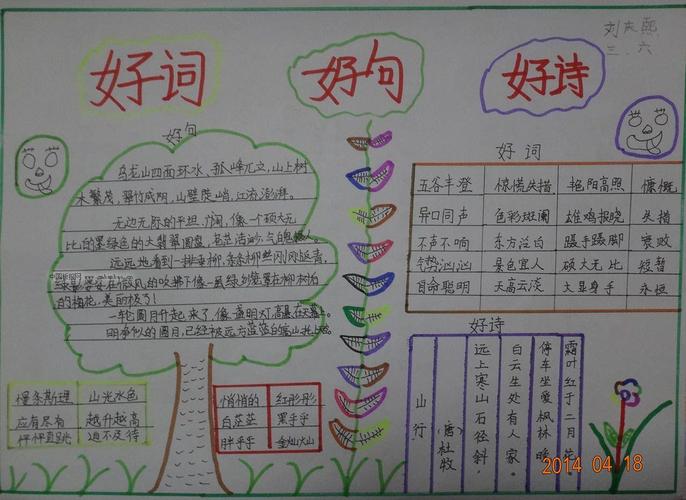 刘
三.六
好词
好句
好诗
好句
乌龙山四面环水、孤峰兀立,山上树
木繁茂,翠竹成阴,山壁陡峭,江涛澎湃。
无边无际的平坦,广阔,像一个硕大无
比的墨绿色的大翡翠圆盘,苍茫浩渺,气
远远地看到一排垂柳,条条柳丝
在微风的吹拂下像
的梅花,美丽极了!
一轮圆月升起来了,像一盏明灯,高悬在天幕上。
的圆月,已经被远方
好词
五谷丰登 惊慌失措 艳阳高照 慷慨
异口同声 色彩斑阑 雄鸡报晓 失措
不声不响 东方泛白 蹑手蹑脚 衰败
气势汹汹 景色宜人 硕大无比 短暂
自命聪明 天高云淡 大显身手 永恒
好诗
山行
(唐)杜牧
远上寒山石径斜,
白云生处有人家。
停车坐爱枫林晚,
霜叶红于二月花。
慢条斯理 山光水色
应有尽有 越升越高
怦怦直跳 迫不及待
悄悄的 红彤彤
白茫茫 黑乎乎
胖乎乎 金灿灿
2014 04 18